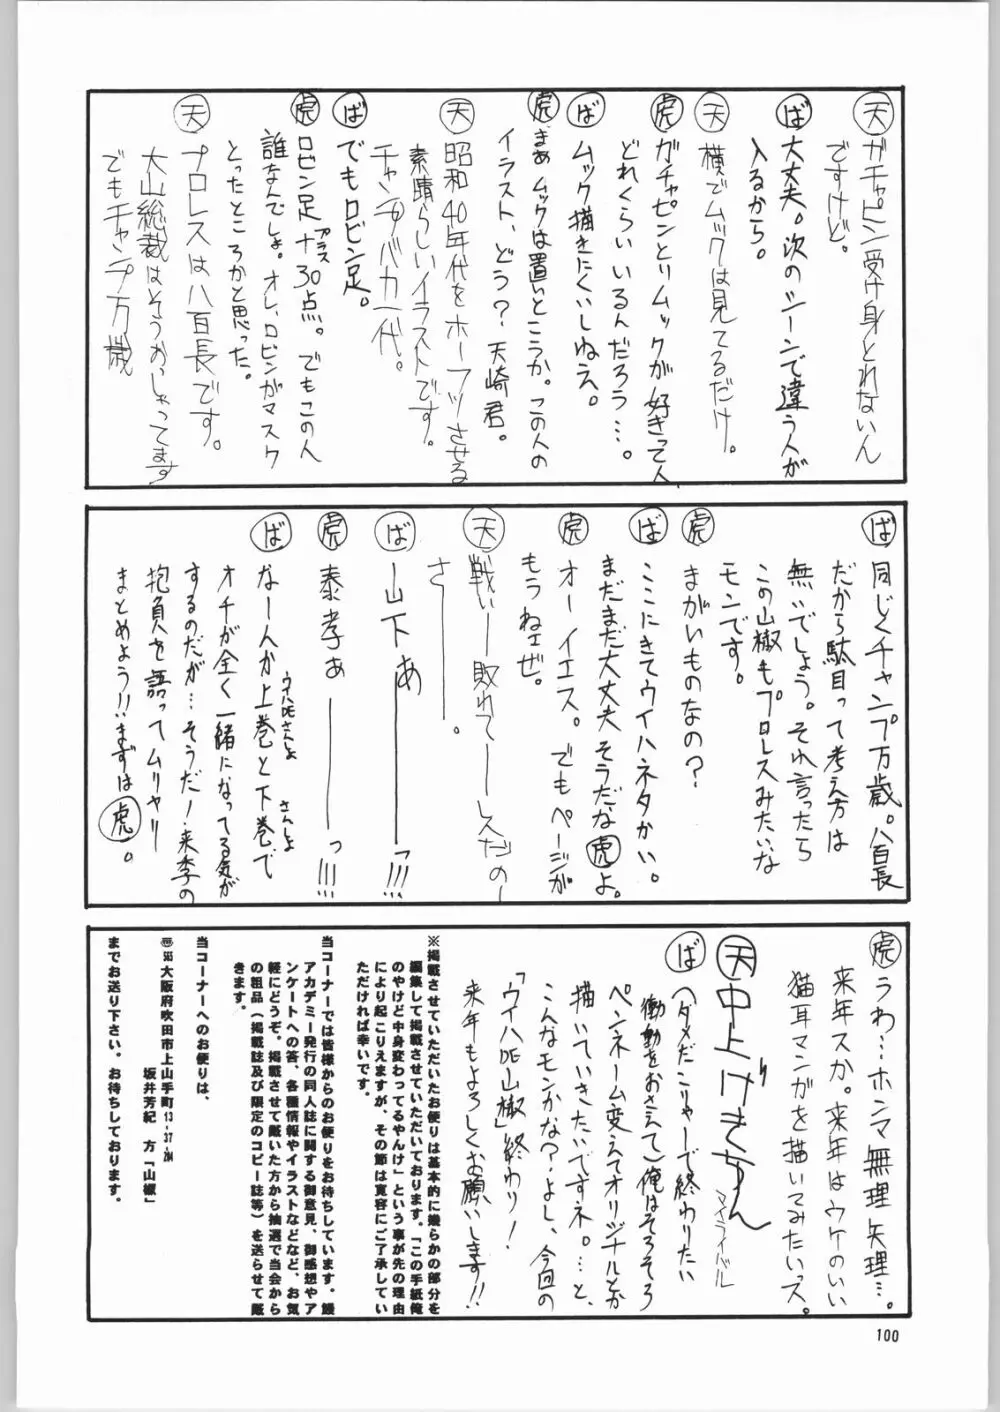 天 ガチャピン受け身とれないん
ですけど。
ば 大丈夫。次のシーンで違う人が
入るから。
天 横でムックは見てるだけ。
虎 ガチャピンとムックが好きって人
どれくらいいるんだろう…。
ば ムック描きにくいしねえ。
虎 まあムックは置いとこうか。この人の
イラスト、どう？天崎君。
天 昭和40年代をホーフツさせる
素晴らしいイラストです。
チャンプバカ一代。
ば でもロビン足。
虎 ロビン足+プラス30点。でもこの人
誰なんでしょ。オレ、ロビンがマスク
とったところかと思った。
天 プロレスは八百長です。
大山総裁はそうおっしゃってます
でもチャンプ万歳
ば 同じくチャンプ万歳。八百長
だから駄目って考え方は
無いでしょう。それ言ったら
この山椒もプロレスみたいな
モンです。
虎 まがいものなの？
ば ここにきてウイハネタかい。
まだまだ大丈夫そうだな虎よ。
虎 オーイエス。でもページが
もうねェぜ。
天 戦いー敗れてーレスだのー
さ———。
ば —山下あ———っ!!!
虎 泰孝ぁ———っ!!!
ば なーんか上巻と下巻で
ウイハDEさんしょ さんしょ
オチが全く一緒になってる気が
するのだが…そうだ！来季の
抱負を語ってムリヤリ
まとめよう!!まずは虎。
虎 うわ…ホンマ無理矢理…。
来年スか。来年はウケのいい
猫耳マンガを描いてみたいっス。
天 中上げきちん
マイライバル
ば (ダメだこりゃーで終わりたい
衝動をおさえて)俺はそろそろ
ペンネーム変えてオリジナルとか
描いていきたいですネ。…と、
こんなモンかな？よし、今回の
「ウイハDE山椒」終わり！
来年もよろしくお願いします!!
※掲載させていただいたお便りは基本的に幾らかの部分を
編集して掲載させていただいております。「この手紙俺
のやけど中身変わってるやんけ」という事が先の理由
により起こりえますが、その節は寛容にご了承してい
ただければ幸いです。
当コーナーでは皆様からのお便りをお待ちしています。鰻
アカデミー発行の同人誌に関する御意見、御感想やア
ンケートへの答、各種情報やイラストなどなど、お気
軽にどうぞ。掲載させて戴いた方から抽選で当会から
の粗品（掲載誌及び限定のコピー誌等）を送らせて戴
きます。
当コーナーへのお便りは、
〒565 大阪府吹田市上山手町13-37-204
坂井芳紀 方「山椒」
までお送り下さい。お待ちしております。
100